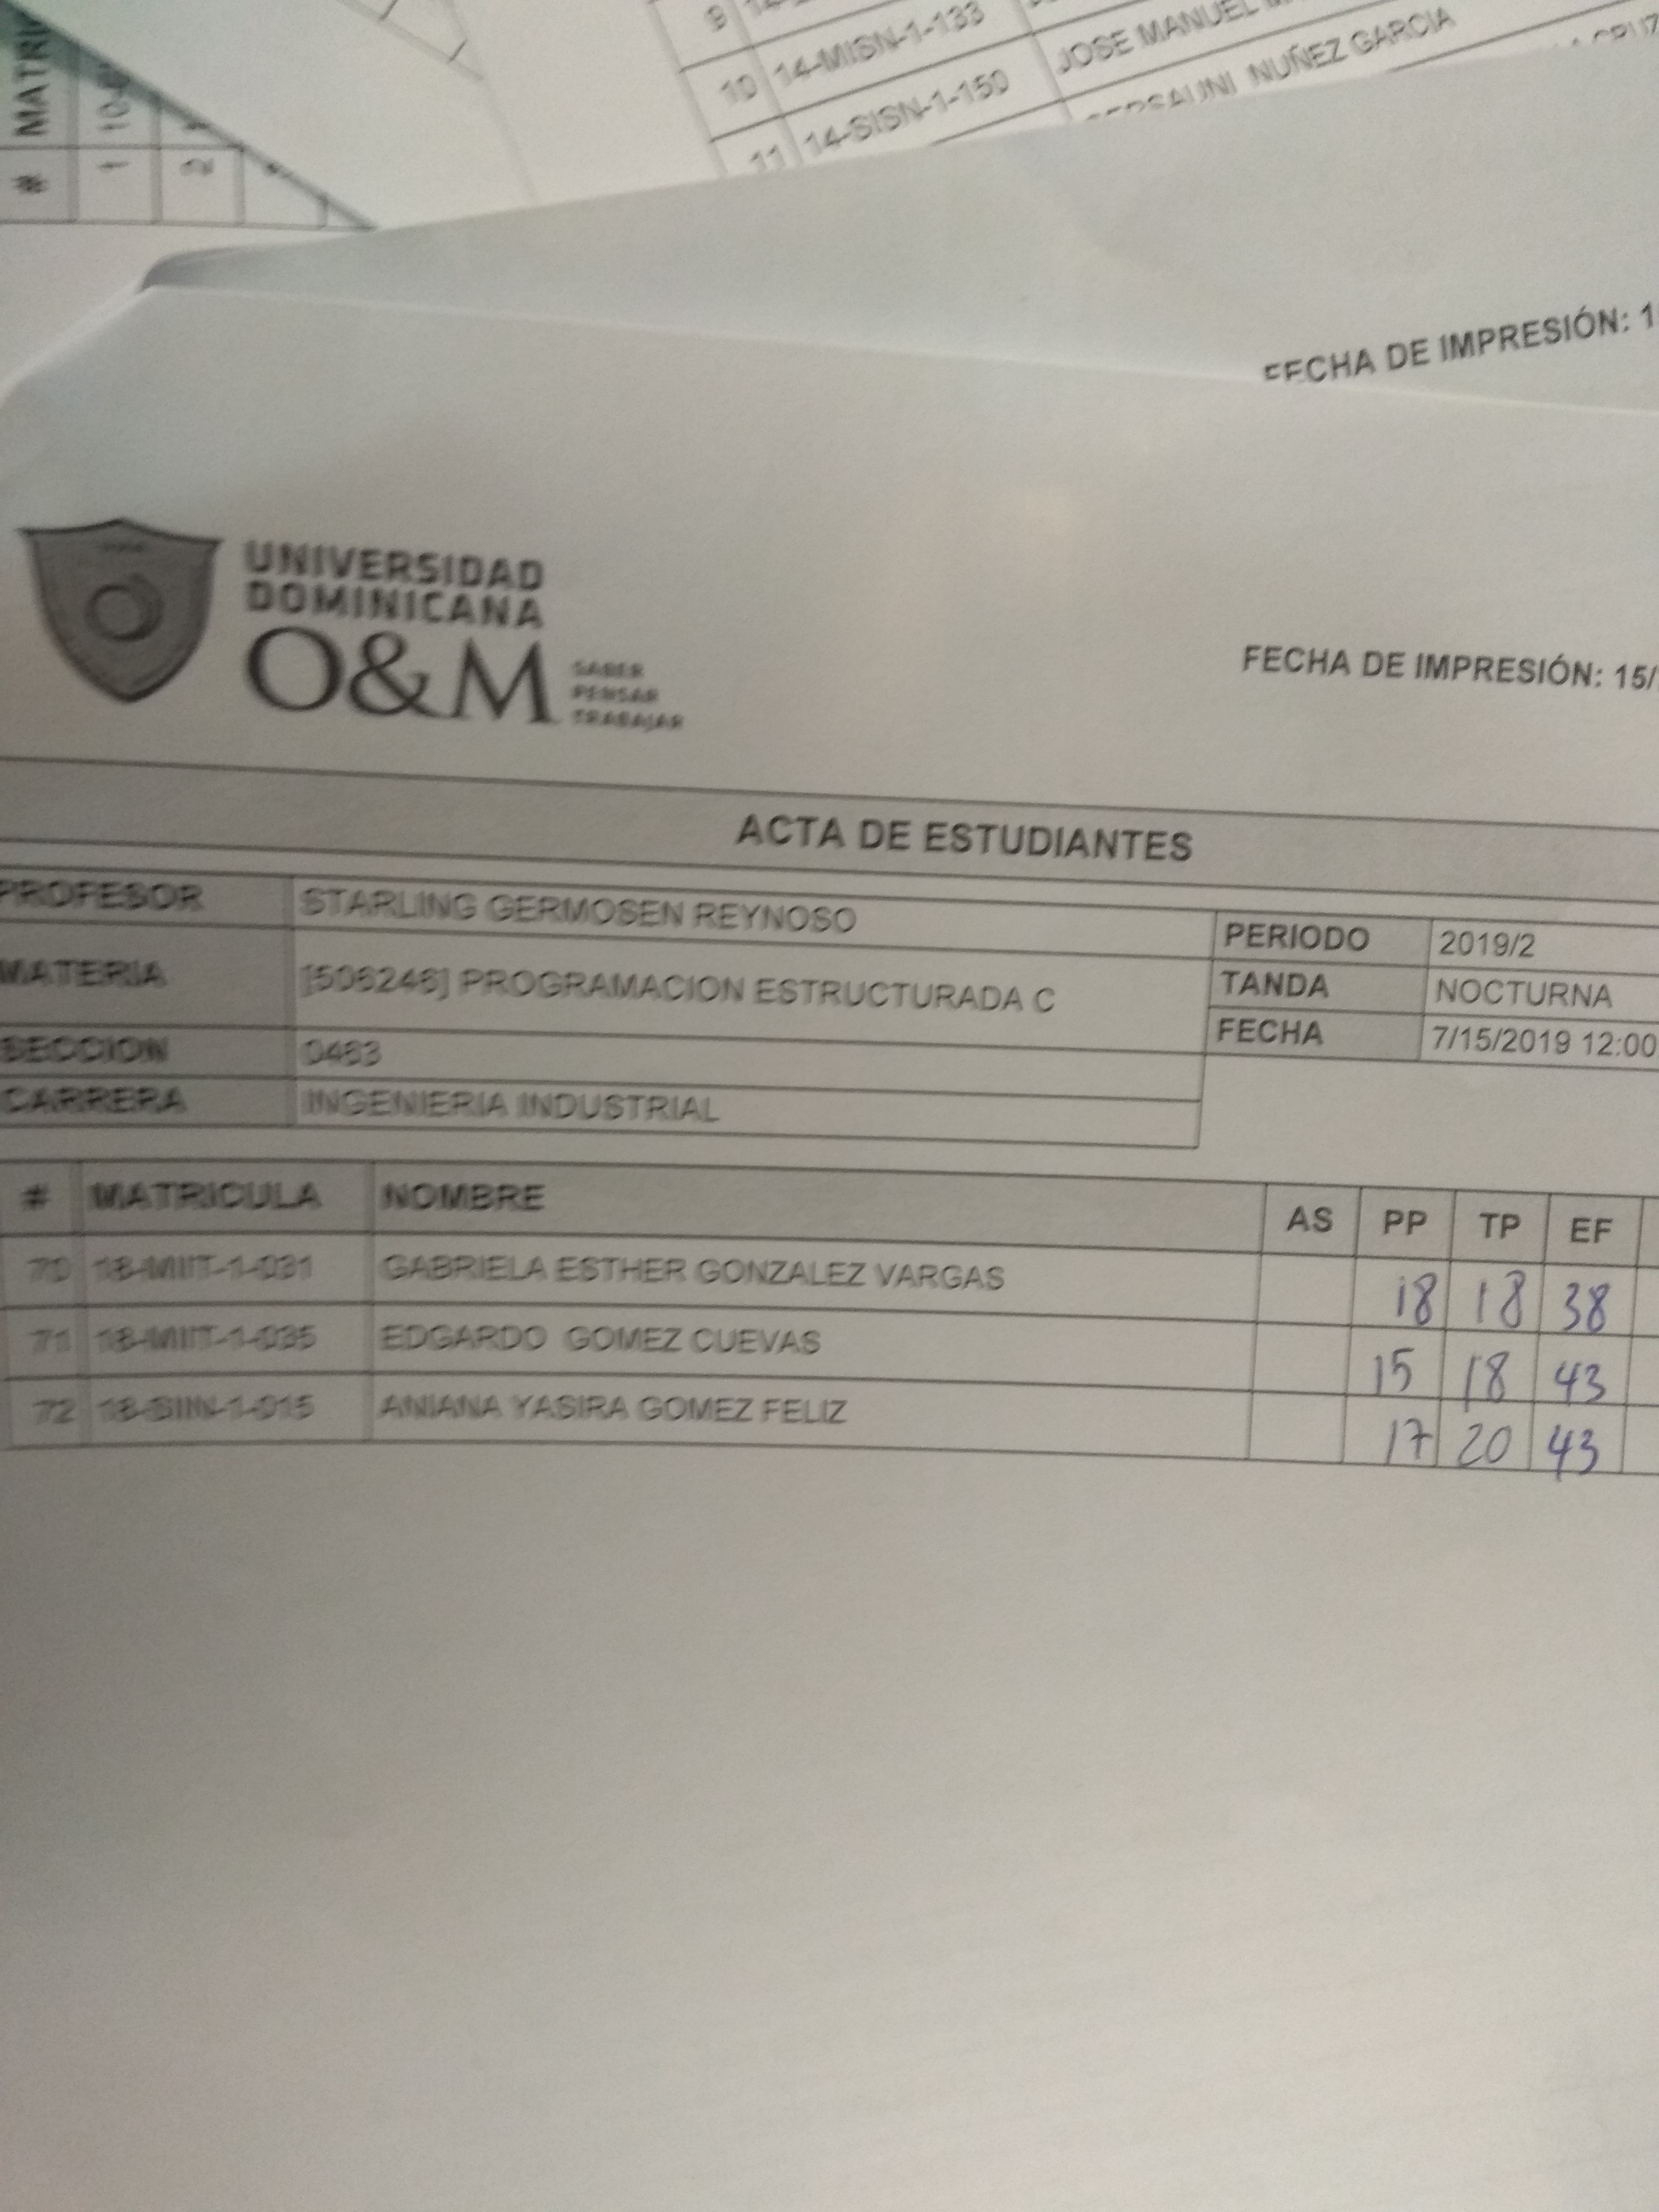 # MATRI
1 10-
2
9
10 14-MISN-1-133 JOSE MANUEL
11 14-SISN-1-150 NUÑEZ GARCIA
FECHA DE IMPRESIÓN: 1
UNIVERSIDAD
DOMINICANA
O&M
SABER
PENSAR
TRABAJAR
FECHA DE IMPRESIÓN: 15/
ACTA DE ESTUDIANTES
PROFESOR STARLING GERMOSEN REYNOSO PERIODO 2019/2
MATERIA [506246] PROGRAMACION ESTRUCTURADA C TANDA NOCTURNA
SECCION 0463 FECHA 7/15/2019 12:00
CARRERA INGENIERIA INDUSTRIAL
# MATRICULA NOMBRE AS PP TP EF
70 18-MIIT-1-031 GABRIELA ESTHER GONZALEZ VARGAS 18 18 38
71 18-MIIT-1-035 EDGARDO GOMEZ CUEVAS 15 18 43
72 18-SIIN-1-015 ANIANA YASIRA GOMEZ FELIZ 17 20 43